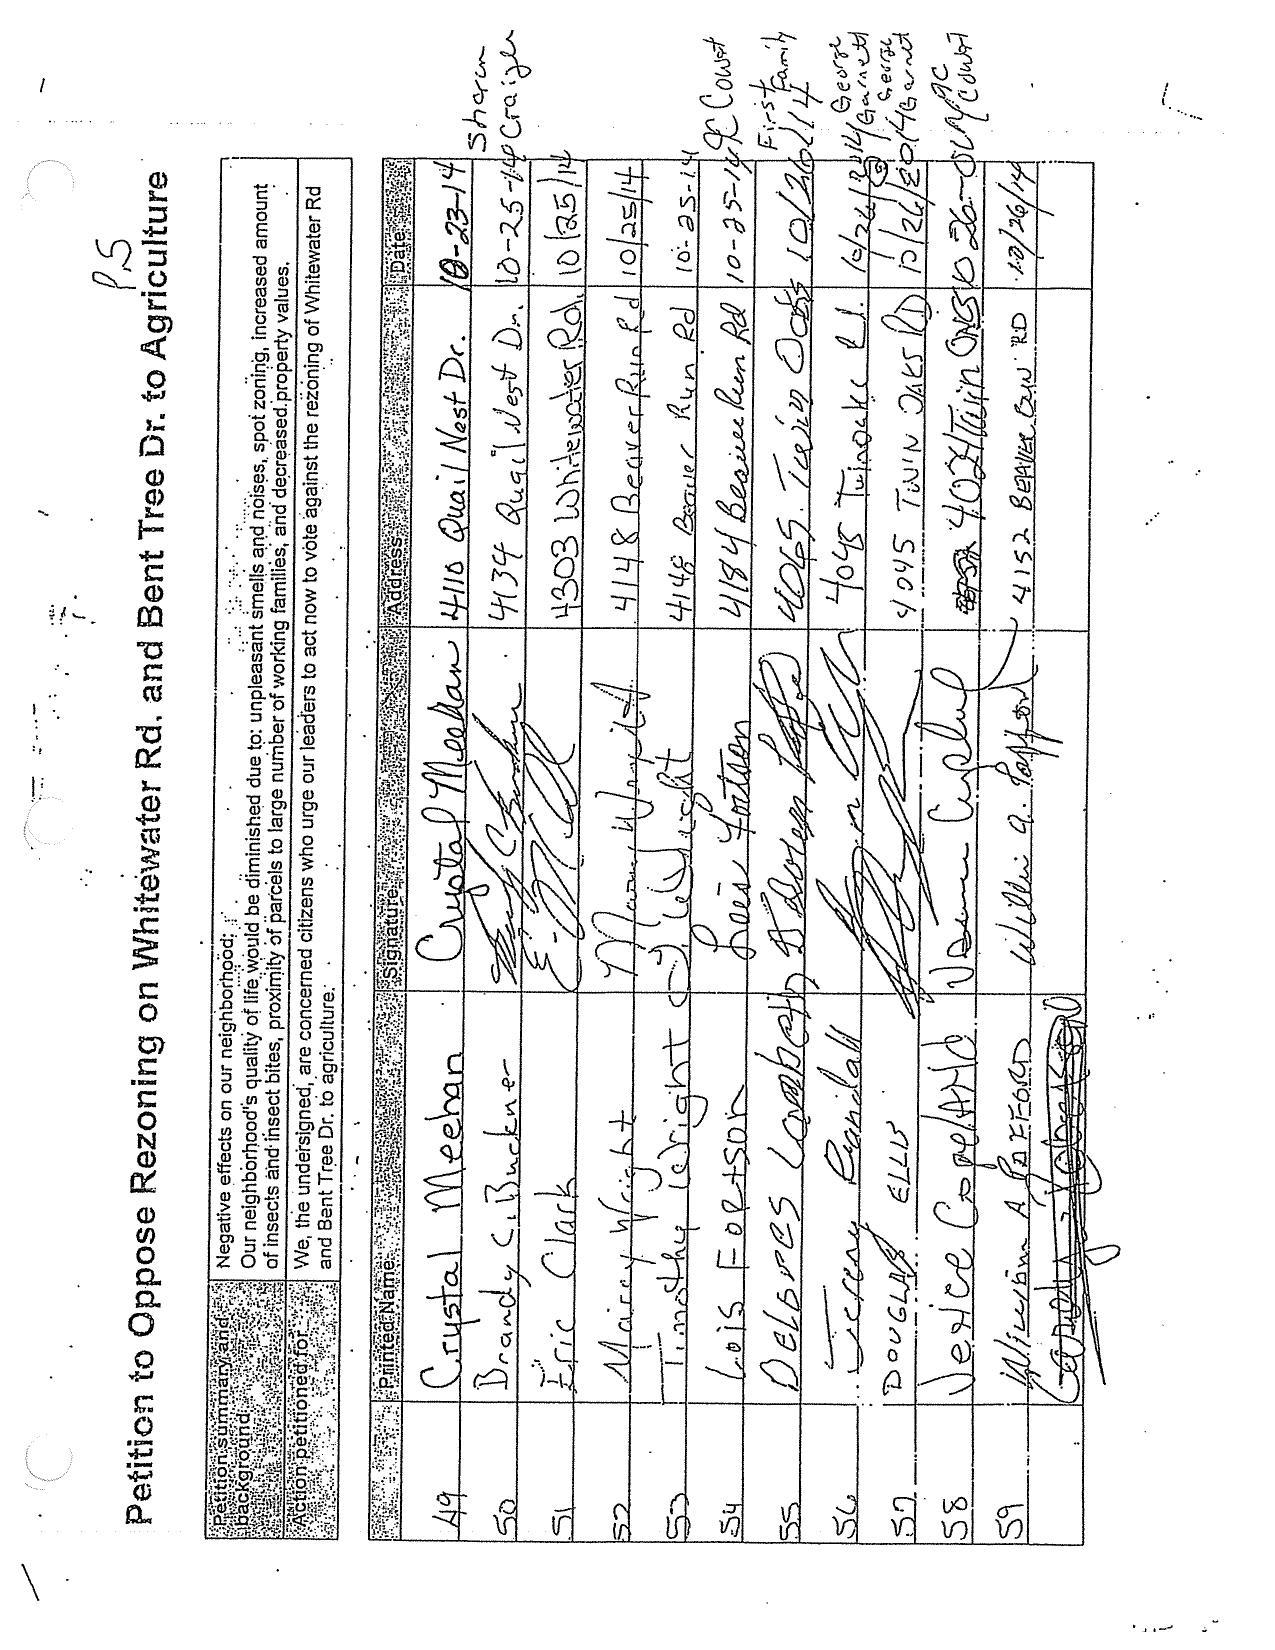 P.5
Petition to Oppose Rezoning on Whitewater Rd. and Bent Tree Dr. to Agriculture
Petition summary and background
Negative effects on our neighborhood:
Our neighborhood's quality of life would be diminished due to: unpleasant smells and noises, spot zoning, increased amount
of insects and insect bites, proximity of parcels to large number of working families, and decreased property values.
Action petitioned for
We, the undersigned, are concerned citizens who urge our leaders to act now to vote against the rezoning of Whitewater Rd
and Bent Tree Dr. to agriculture.
Printed Name Signature Address Date
49 Crystal Meehan Crystal Meehan 4110 Quail Nest Dr. 10-23-14
50 Brandy C. Buckner 4134 Quail Nest Dr. 10-25-14 Sharon Craigen
51 Eric Clark 4303 Whitewater Rd. 10/25/14
52 Mairey Wright 4148 Beaver Run Rd 10/25/14
53 Timothy Wright 4148 Beaver Run Rd 10-25-14
54 Lois Fortson Lois Fortson 4184 Beaver Run Rd 10-25-14 JC Cowat
55 DELORES Lambeth 4065 Twin Oaks 10/26/14 First Family
56 Jereny Randall 4045 Twinoaks Rd. 10/26/2014 George Garnett
57 DOUGLAS ELLIS 4045 TWIN OAKS RD 10/26/2014 George Garnet
58 Verice CopelAND 4024 Twin ONKS 10-26-014 AC COWAT
59 William A PAFFORD William A. Pafford 4152 BEAVER RUN RD 10/26/14